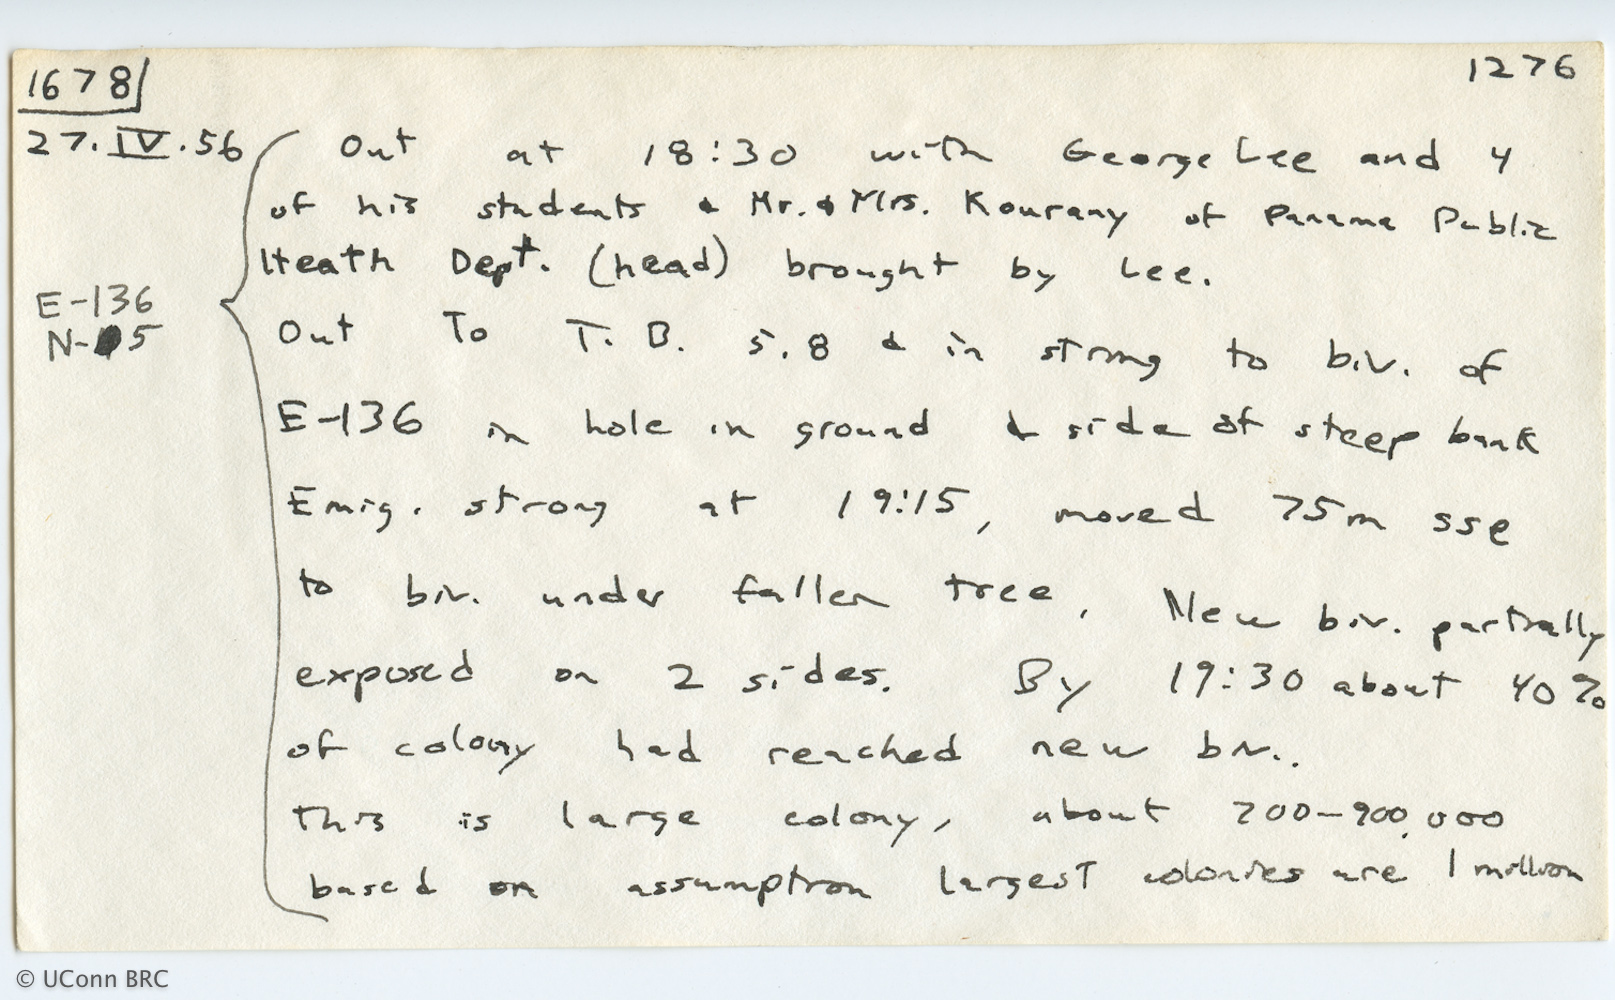 1678 1276
27.IV.56 Out at 18:30 with George Lee and 4
of his students & Mr. & Mrs. Kourany of Panama Public
Heath Dept. (head) brought by Lee.
E-136
N-5
Out To T.B. 5.8 & in strong to biv. of
E-136 in hole in ground & side of steep bank
Emig. strong at 19:15, moved 75m sse
to biv. under fallen tree. New biv. partially
exposed on 2 sides. By 19:30 about 40%
of colony had reached new biv..
This is large colony, about 700-900,000
based on assumption largest colonies are 1 million
© UConn BRC